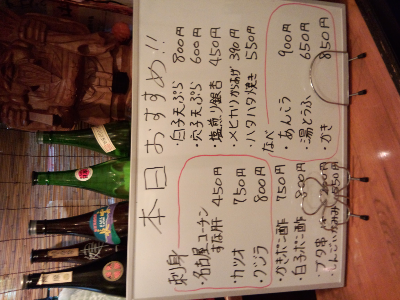 本日おすすめ!!
刺身
・名古屋コーチン
すな肝 450円
・カツオ 750円
・クジラ 800円
・かきポン酢 750円
・白子ポン酢 800円
・ブタ串
・白子天ぷら 800円
・穴子天ぷら 600円
・塩煎り銀杏 450円
・メヒカリからあげ 390円
・ハタハタ焼き 550円
なべ
・あんこう 900円
・湯どうふ 650円
・かき 850円